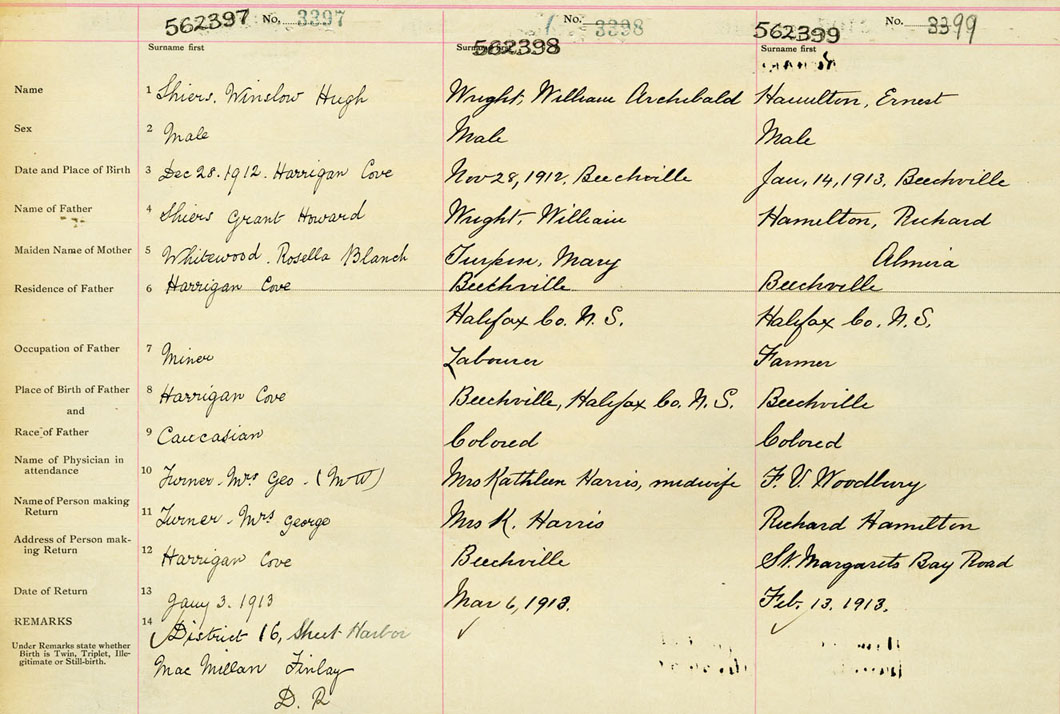 562397 No. 3397
Surname first
562398 No. 3398
Surname first
562399 No. 3399
Surname first
Name 1 Shiers, Winslow Hugh Wright, William Archibald Hamilton, Ernest
Sex 2 Male Male Male
Date and Place of Birth 3 Dec 28. 1912. Harrigan Cove Nov 28, 1912, Beechville Jan, 14, 1913, Beechville
Name of Father 4 Shiers Grant Howard Wright, William Hamilton, Richard
Maiden Name of Mother 5 Whitewood. Rosella Blanch Turpin, Mary Almira
Residence of Father 6 Harrigan Cove Beechville Beechville
Halifax Co. N. S. Halifax Co. N. S.
Occupation of Father 7 Miner Labourer Farmer
Place of Birth of Father 8 Harrigan Cove Beechville, Halifax Co. N. S. Beechville
and
Race of Father 9 Caucasian Colored Colored
Name of Physician in
attendance 10 Turner - Mrs Geo - (MW) Mrs Kathleen Harris, midwife F. V. Woodbury
Name of Person making
Return 11 Turner - Mrs George Mrs K. Harris Richard Hamilton
Address of Person mak-
ing Return 12 Harrigan Cove Beechville St. Margarets Bay Road
Date of Return 13 Jany 3. 1913 Mar 6, 1913. Feb. 13. 1913.
REMARKS 14 District 16, Sheet Harbor
Under Remarks state whether
Birth is Twin, Triplet, Ille-
gitimate or Still-birth.
Mac Millan Finlay
D. R